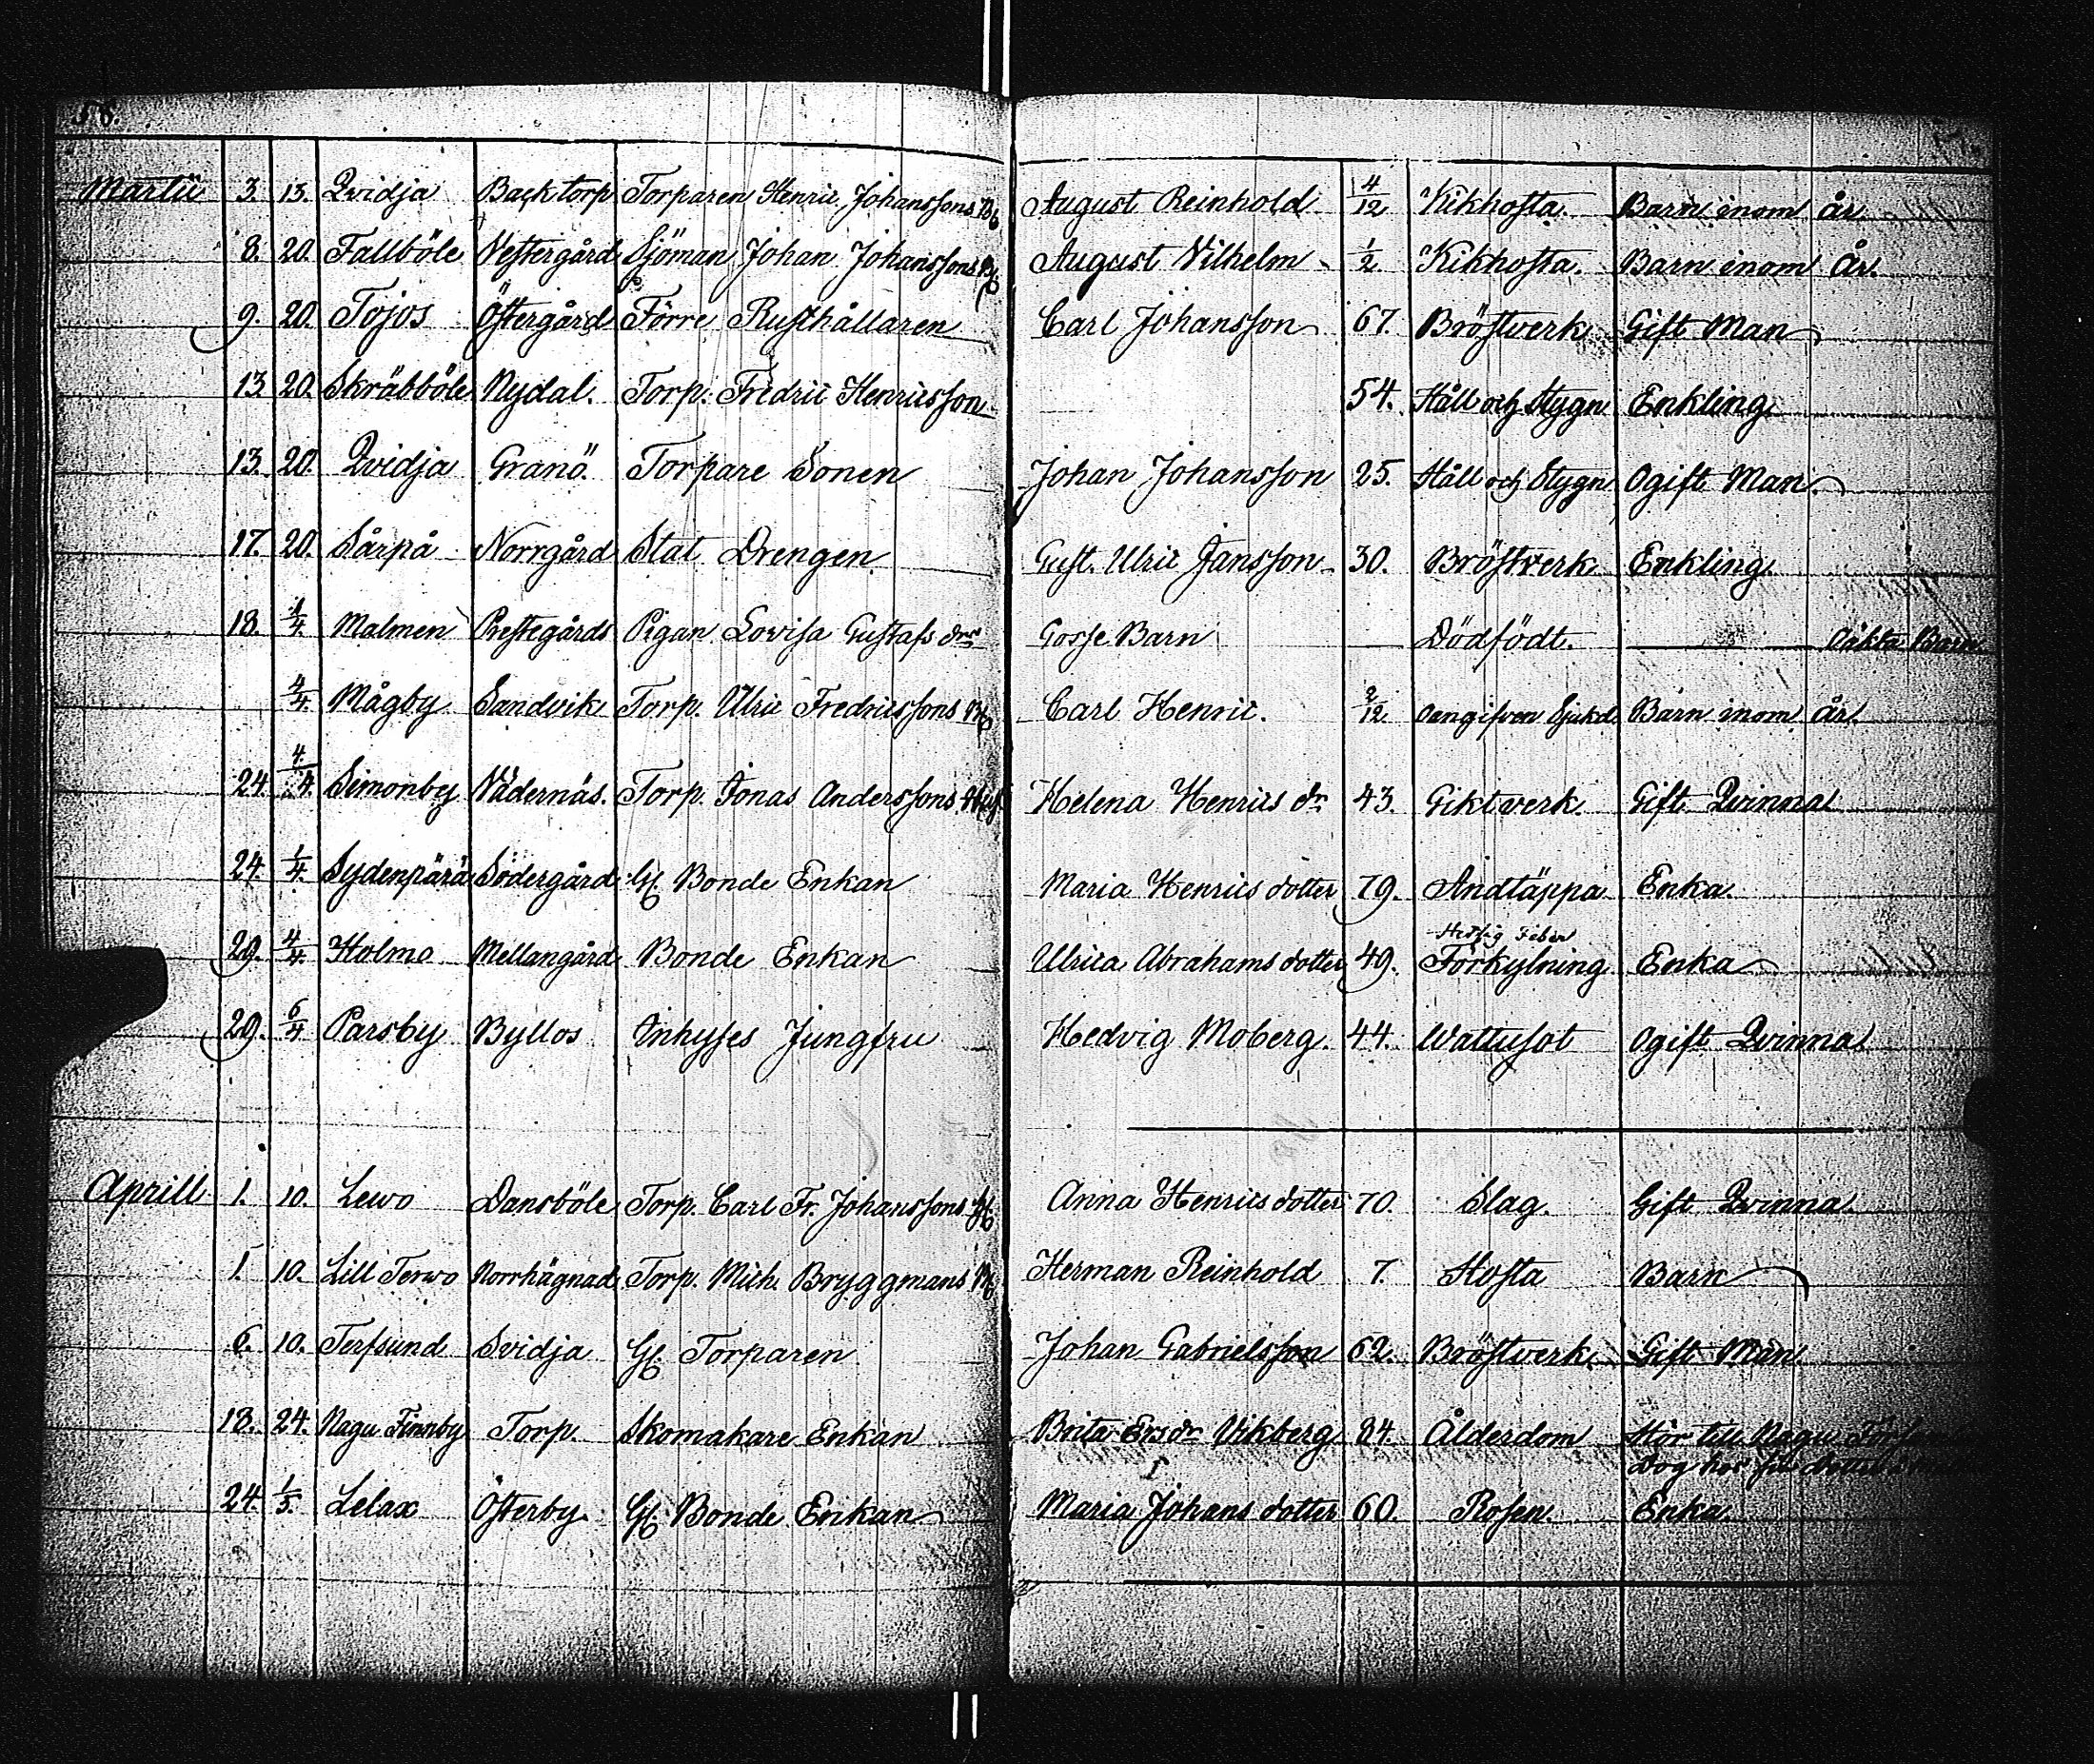 58.
Martii 3. 13. Qvidja Backtorp Torparen Henric Johanssons Bb August Reinhold 4/12 Kikhosta. Barn inom år.
8. 20. Fallböle Vestergård Sjöman Johan Johanssons August Vilhelm 1/2 Kikhosta. Barn inom År.
9. 20. Tojos Östergård Förre Rusthållaren Carl Johansson 67. Bröstverk Gift Man
13 20. Skräbböle Nydal. Torp. Fredric Henricsson 54. Håll och Stygn Enkling
13. 20. Qvidja Granö. Torpare Sonen Johan Johansson 25. Håll och Stygn Ogift Man.
17. 20. Sårpå Norrgård Stat Drengen Gust. Ulric Jansson 30. Bröstverk Enkling.
18. 1/4. Malmen Prestegårds Pigan Lovisa Gustafs drs Gosse Barn Dödfödt. Oäkta Barn.
4/4 Mågby Sandvik Torp. Ulric Fredricssons Carl Henric. 2/12 Oangifven Sjukd. Barn inom år.
24. 4/4. Simonby Nädernäs. Torp. Jonas Anderssons Hust. Helena Henrics dr 43. Giktverk. Gift Qvinna
24. 1/4. Sydenpärä Södergård Gl. Bonde Enkan Maria Henrics dotter 79. Andtäppa Enka.
Hetsig Feber
29. 4/4. Holmo Mellangård Bonde Enkan Ulrica Abrahams dotter 49. Förkylning Enka
29. 6/4 Parsby Byllos Inhyses Jungfru Hedvig Moberg. 44. Wattusot Ogift Qvinna.
Aprill 1. 10. Lewo Dansböle Torp. Carl Fr. Johanssons Anna Henrics dotter 70. Slag. Gift Qvinna.
1. 10. Lill Terwo Norrhägnad Torp. Mich. Bryggmans Herman Reinhold 7. Hosta Barn
6. 10. Terfsund Svidja Gl. Torparen Johan Gabrielsson 62. Bröstverk. Gift Man.
18. 24. Nagu Finnby Torp. Skomakare Enkan Brita Ersdr Vikberg 84. Ålderdom Hör till Nagu
Dog hos
24. 1/5. Lelax Österby. Gl. Bonde Enkan Maria Johans dotter 60. Rosen. Enka.